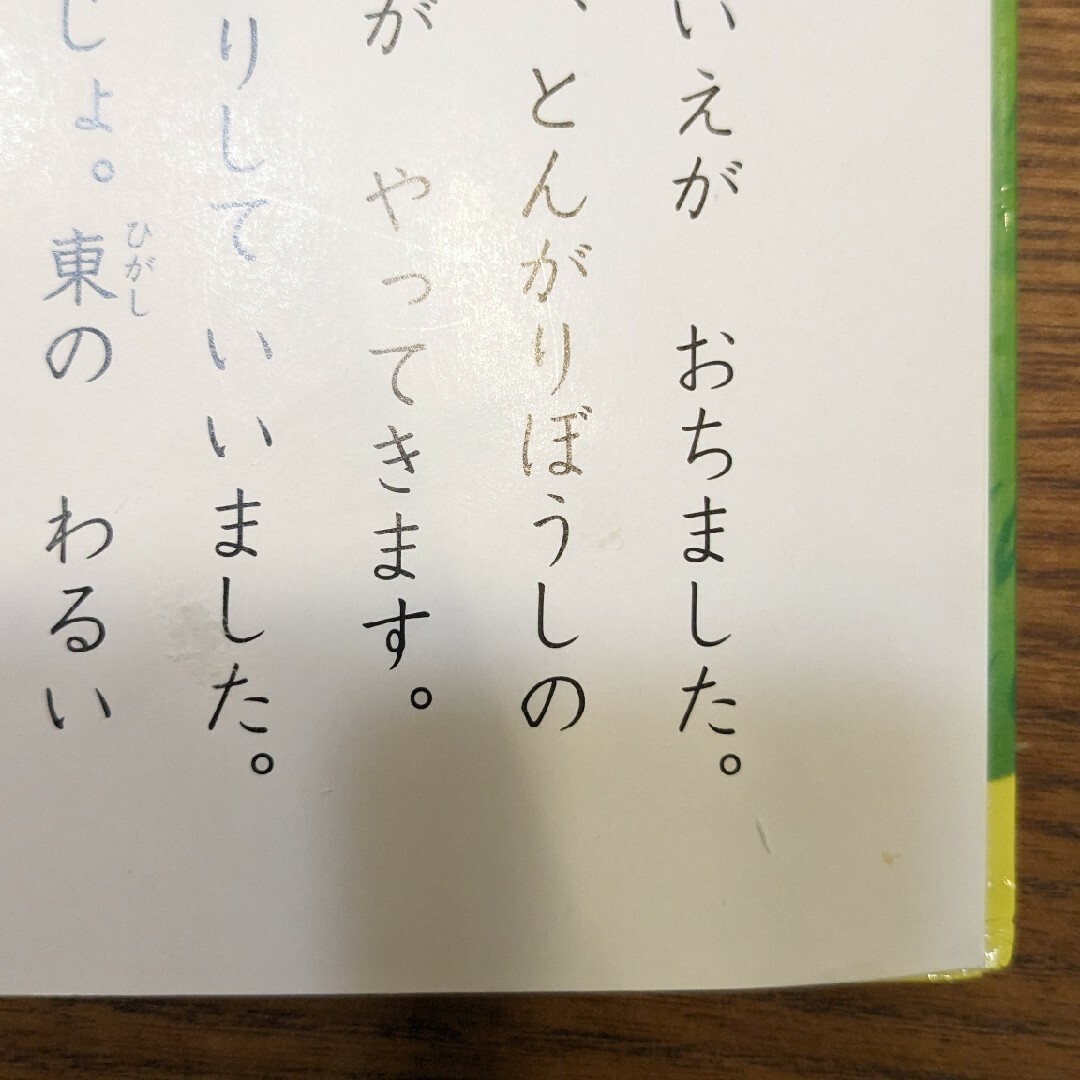 いえが おちました。
、とんがりぼうしの
が やってきます。
りして いいました。
じょ。東の わるい
ひがし